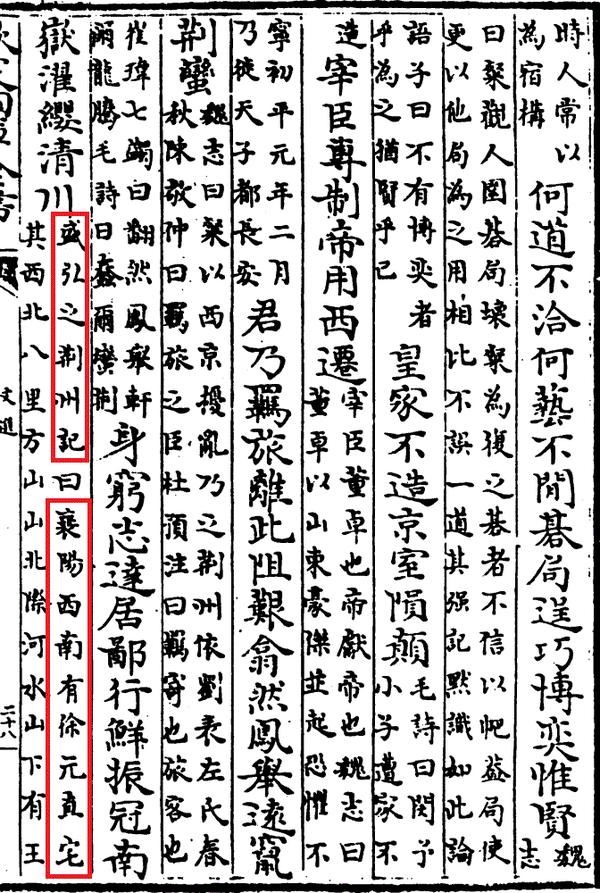 時人常以
為宿構
何道不洽何藝不閒碁局逞巧博奕惟賢
魏
志
曰粲觀人圍碁局壞粲為復之碁者不信以帊蓋局使
更以他局為之用相比不誤一道其强記默識如此論
語子曰不有博奕者
乎為之猶賢乎已
皇家不造京室隕顛
毛詩曰閔予
小子遭家不
造
宰臣專制帝用西遷
宰臣董卓也帝獻帝也魏志曰
董卓以山東豪傑並起恐懼不
寧初平元年二月
乃徙天子都長安
君乃羈旅離此阻艱翕然鳳舉遠竄
荆蠻
魏志曰粲以西京擾亂乃之荆州依劉表左氏春
秋陳敬仲曰羈旅之臣杜預注曰羈寄也旅客也
崔瑋七蠲曰翻然鳳舉軒
爾龍騰毛詩曰蠢爾蠻荆
身窮志達居鄙行鮮振冠南
嶽濯纓清川
盛弘之荆州記曰襄陽西南有徐元直宅
其西北八里方山山北際河水山下有王
文選
二十八